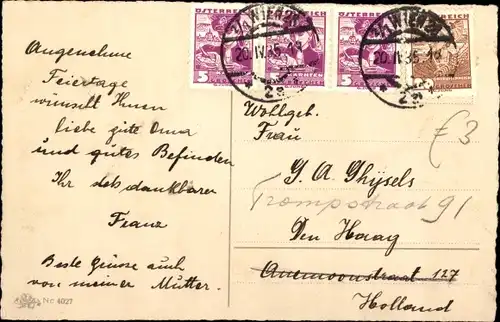 Angenehme
Feiertage
wünscht Ihnen
liebe gute Oma
und gutes Befinden
Ihr sets dankbarer
Franz
Beste Grüsse auch
von meiner Mutter.
Nr 4027
ÖSTERREICH
WIEN
20.IV.35
5
KÄRNTEN
GROSCHEN
Wohlgeb.
Frau
G. A. Ghÿsels
Trompstraat 91
Den Haag
Anemoonstraat 127
Holland
€3